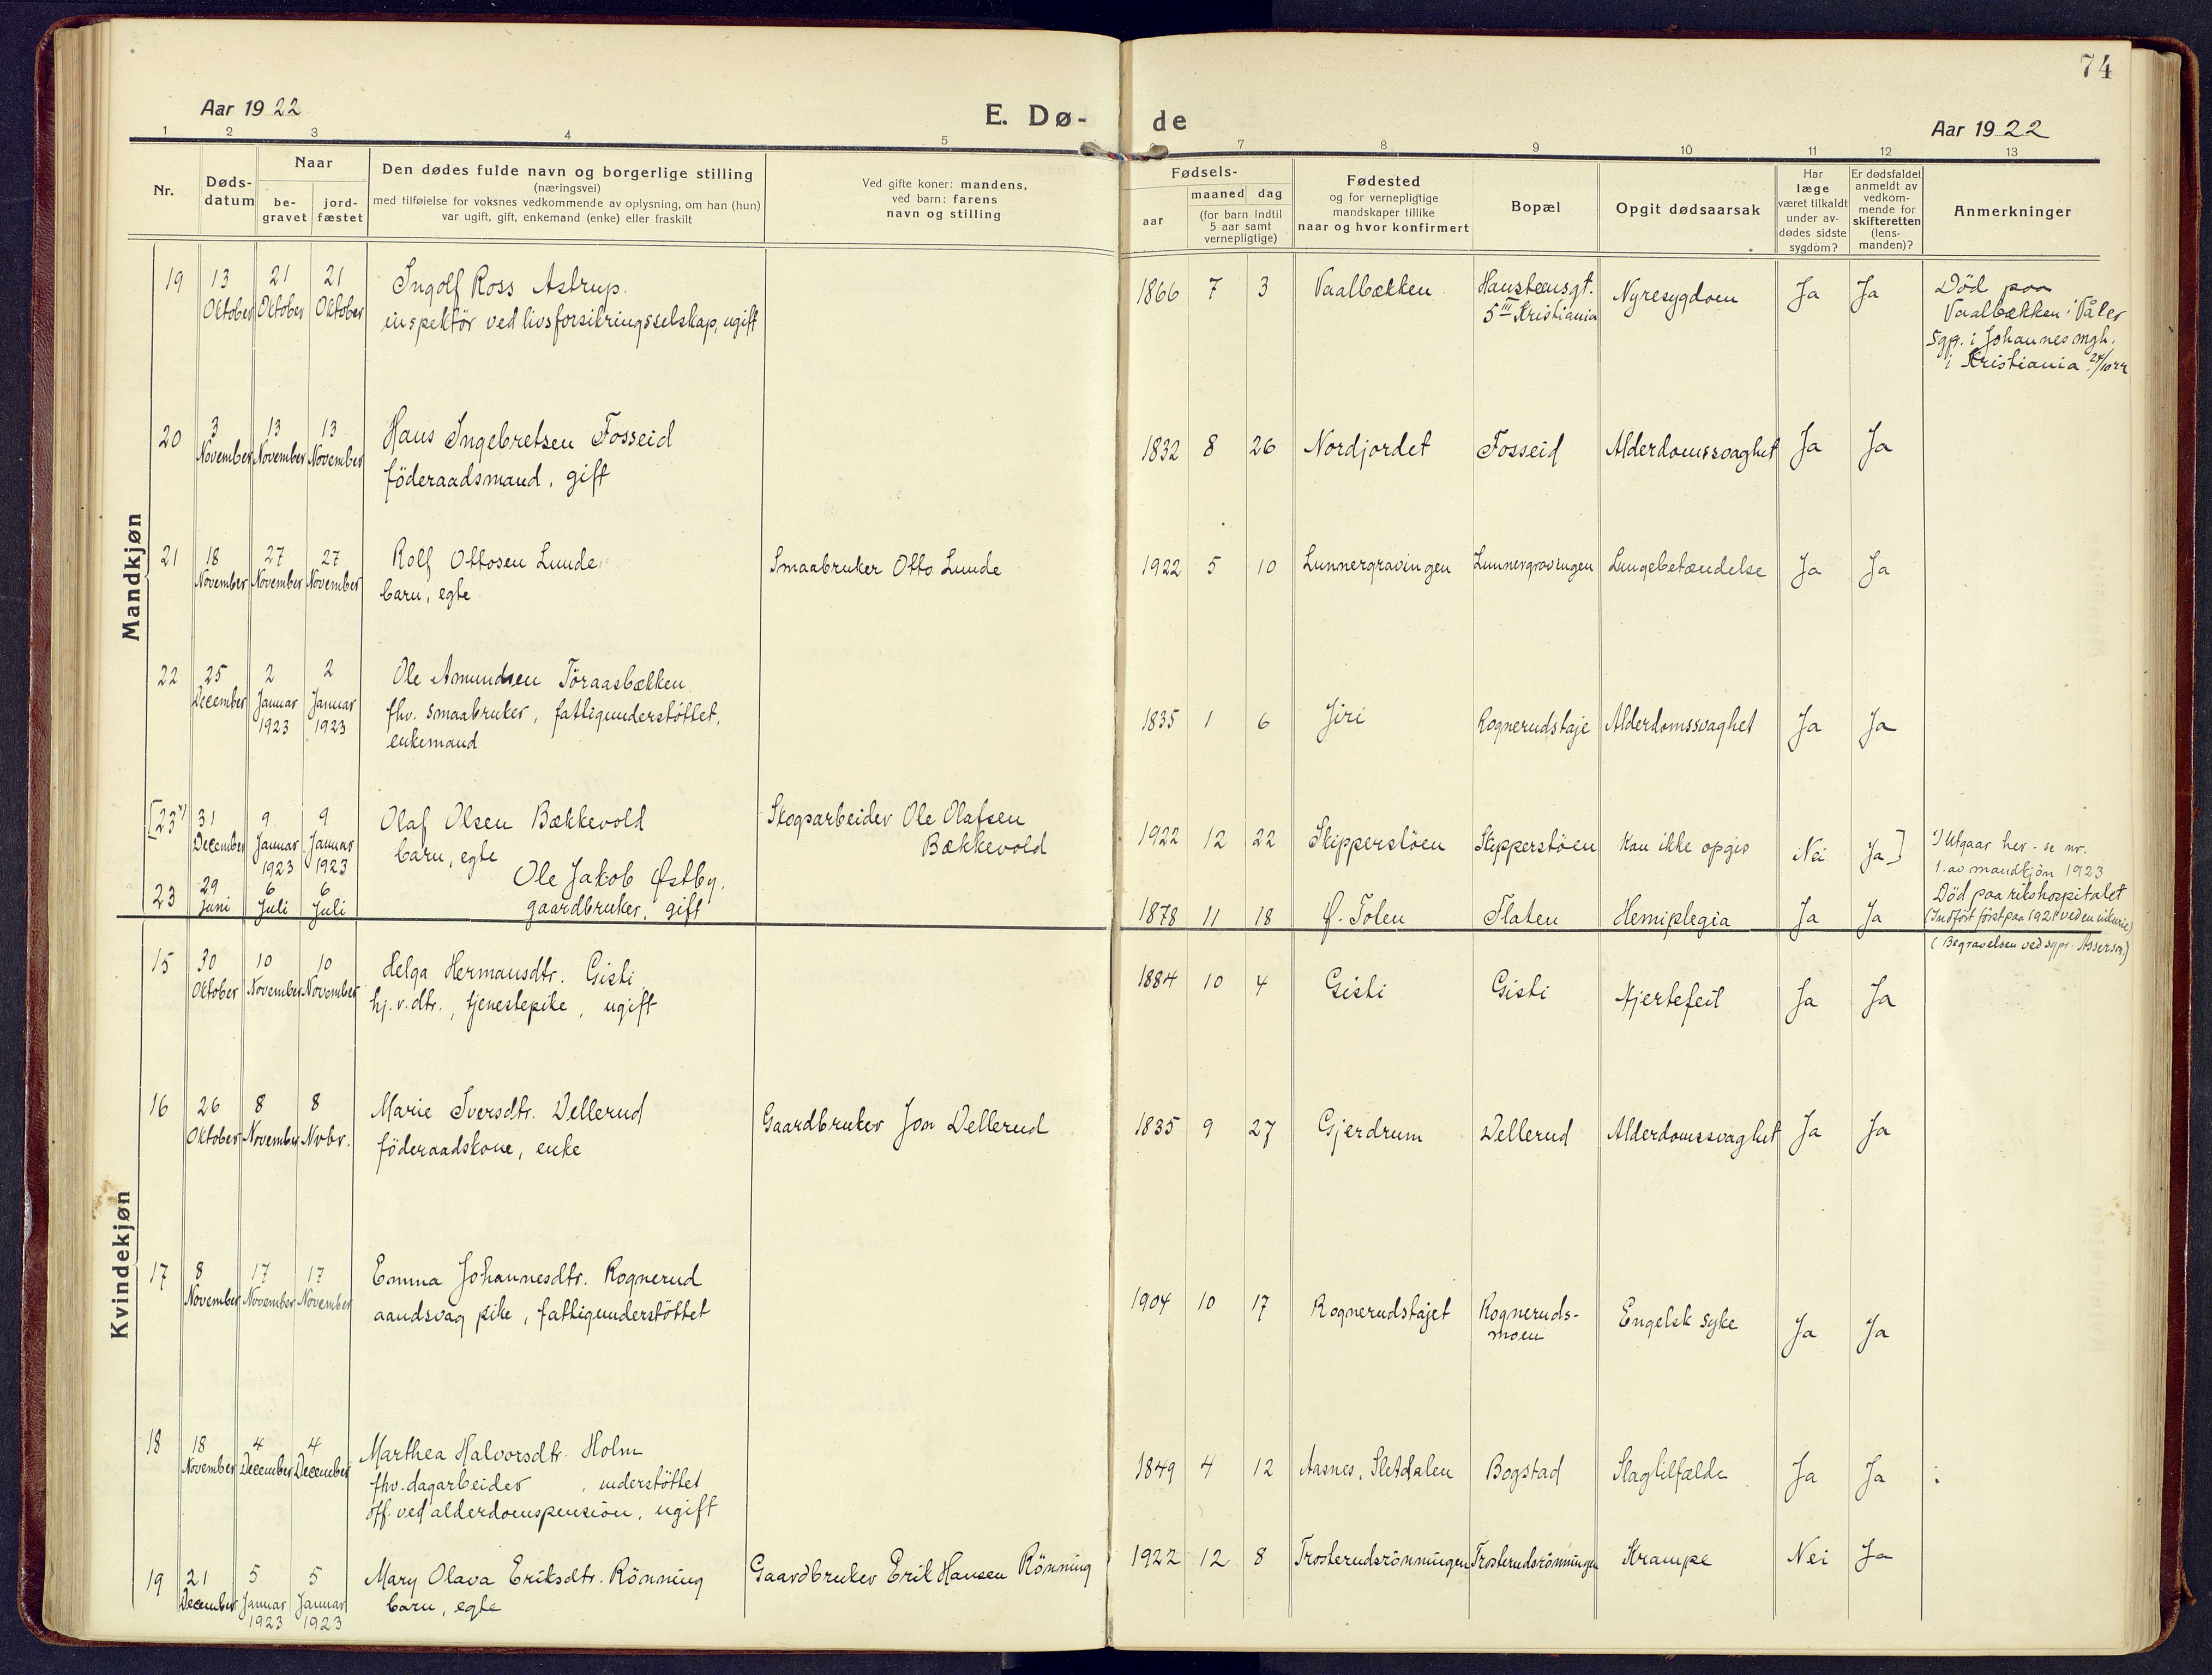 74
Aar 1922
E. Dø-
de
Aar 1922
1 2 3 4 5 7 8 9 10 11 12 13
Nr.
Døds-
datum
Naar
be-
gravet
jord-
fæstet
Den dødes fulde navn og borgerlige stilling
(næringsvei)
med tilføielse for voksnes vedkommende av oplysning, om han (hun)
var ugift, gift, enkemand (enke) eller fraskilt
Ved gifte koner: mandens,
ved barn: farens
navn og stilling
Fødsels-
aar
maaned dag
(for barn indtil
5 aar samt
vernepligtige)
Fødested
og for vernepligtige
mandskaper tillike
naar og hvor konfirmert
Bopæl
Opgit dødsaarsak
Har
læge
været tilkaldt
under av-
dødes sidste
sygdom?
Er dødsfaldet
anmeldt av
vedkom-
mende for
skifteretten
(lens-
manden)?
Anmerkninger
Mandkjøn
19
13
Oktober
21
Oktober
21
Oktober
Ingolf Ross Astrup.
inspektör ved livsforsikringsselskap, ugift
1866 7 3
Vaalbækken
Hansteensgt.
5 III Kristiania
Nyresygdom
Ja
Ja
Död paa
Vaalbækken i Våler
Sgpr. i Johannes mgh.
i Kristiania 24/10 22
20
3
November
13
November
13
November
Hans Ingebretsen Fosseid
föderaadsmand, gift
1832 8 26
Nordjordet
Fosseid
Alderdomssvaghet
Ja
Ja
21
18
November
27
November
27
November
Rolf Ottosen Lunde
barn, egte
Smaabruker Otto Lunde
1922 5 10
Lunnergravingen
Lunnergravingen
Lungebetændelse
Ja
Ja
22
25
December
2
Januar
1923
2
Januar
1923
Ole Amundsen Töraasbækken
fhv. smaabruker, fattigunderstöttet,
enkemand
1835 1 6
Jiri
Rognerudstaje
Alderdomssvaghet
Ja
Ja
[23 ¹)
31
December
9
Januar
1923
9
Januar
1923
Olaf Olsen Bækkevold
barn, egte
Skogsarbeider Ole Olafsen
Bækkevold
1922 12 22
Skipperstöen
Skipperstöen
Kan ikke opgis
Nei
Ja ]
¹) Utgaar her - se nr.
1. av mandkjön 1923
23
29
Juni
6
Juli
6
Juli
Ole Jakob Østby,
gaardbruker, gift
1878 11 18
Ø. Tolen
Flaten
Hemiplegia
Ja
Ja
Död paa rikshospitalet
(Indfört först paa 1921 ved en inkurie)
(Begravelsen ved sgpr. Asserson)
Kvindekjøn
15
30
Oktober
10
November
10
November
Helga Hermansdtr. Gisti
hj.v.dtr., tjenestepike, ugift
1884 10 4
Gisti
Gisti
Hjertefeil
Ja
Ja
16
26
Oktober
8
November
8
Novbr.
Marie Iversdtr. Vellerud
föderaadskone, enke
Gaardbruker Jon Vellerud
1835 9 27
Gjerdrum
Vellerud
Alderdomssvaghet
Ja
Ja
17
8
November
17
November
17
November
Emma Johannesdtr. Rognerud
aandsvag pike, fattigunderstöttet
1904 10 17
Rognerudstajet
Rogneruds-
moen
Engelsk syke
Ja
Ja
18
18
November
4
December
4
December
Marthea Halvorsdtr. Holm
fhv. dagarbeider, understöttet
off. ved alderdomspension, ugift
1849 4 12
Aasnes, Sletdalen
Bogstad
Slagtilfælde
Ja
Ja
19
21
December
5
Januar
1923
5
Januar
1923
Mary Olava Eriksdtr. Rönning
barn, egte
Gaardbruker Erik Hansen Rönning
1922 12 8
Trosterudsrönningen
Trosterudsrönningen
Krampe
Nei
Ja